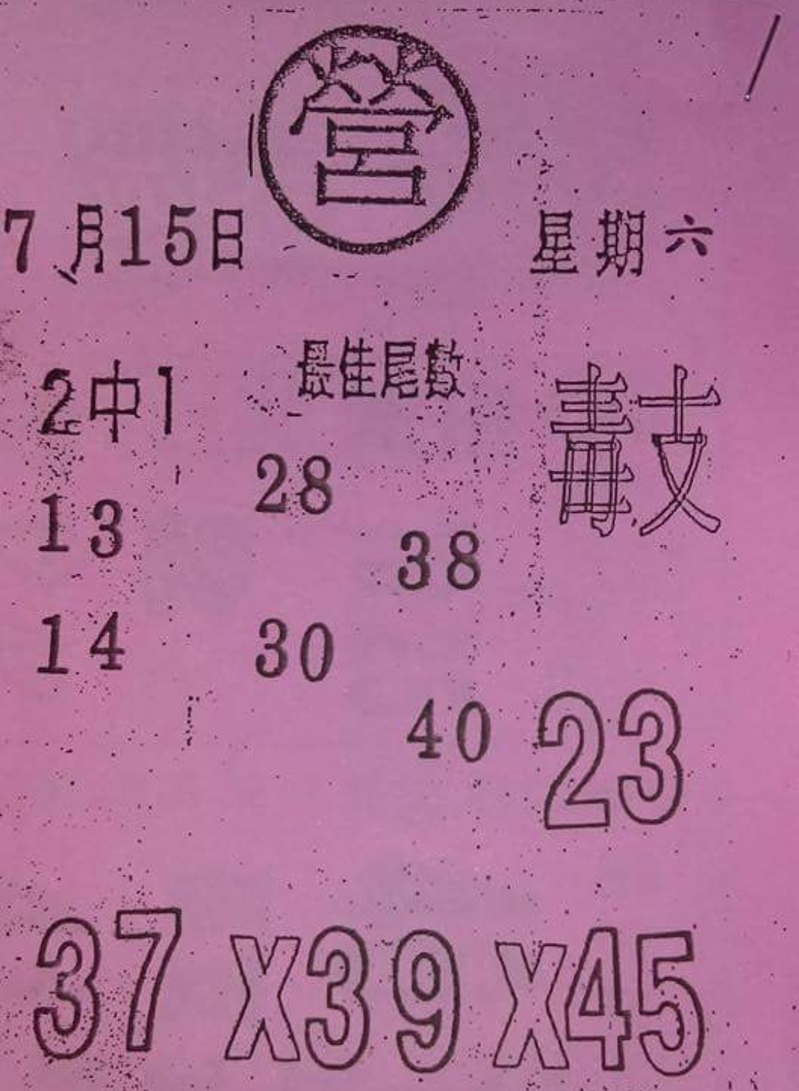 營
7月15日 星期六
2中1 最佳尾數
13 28
38
14 30
40 23
37 X39 X45